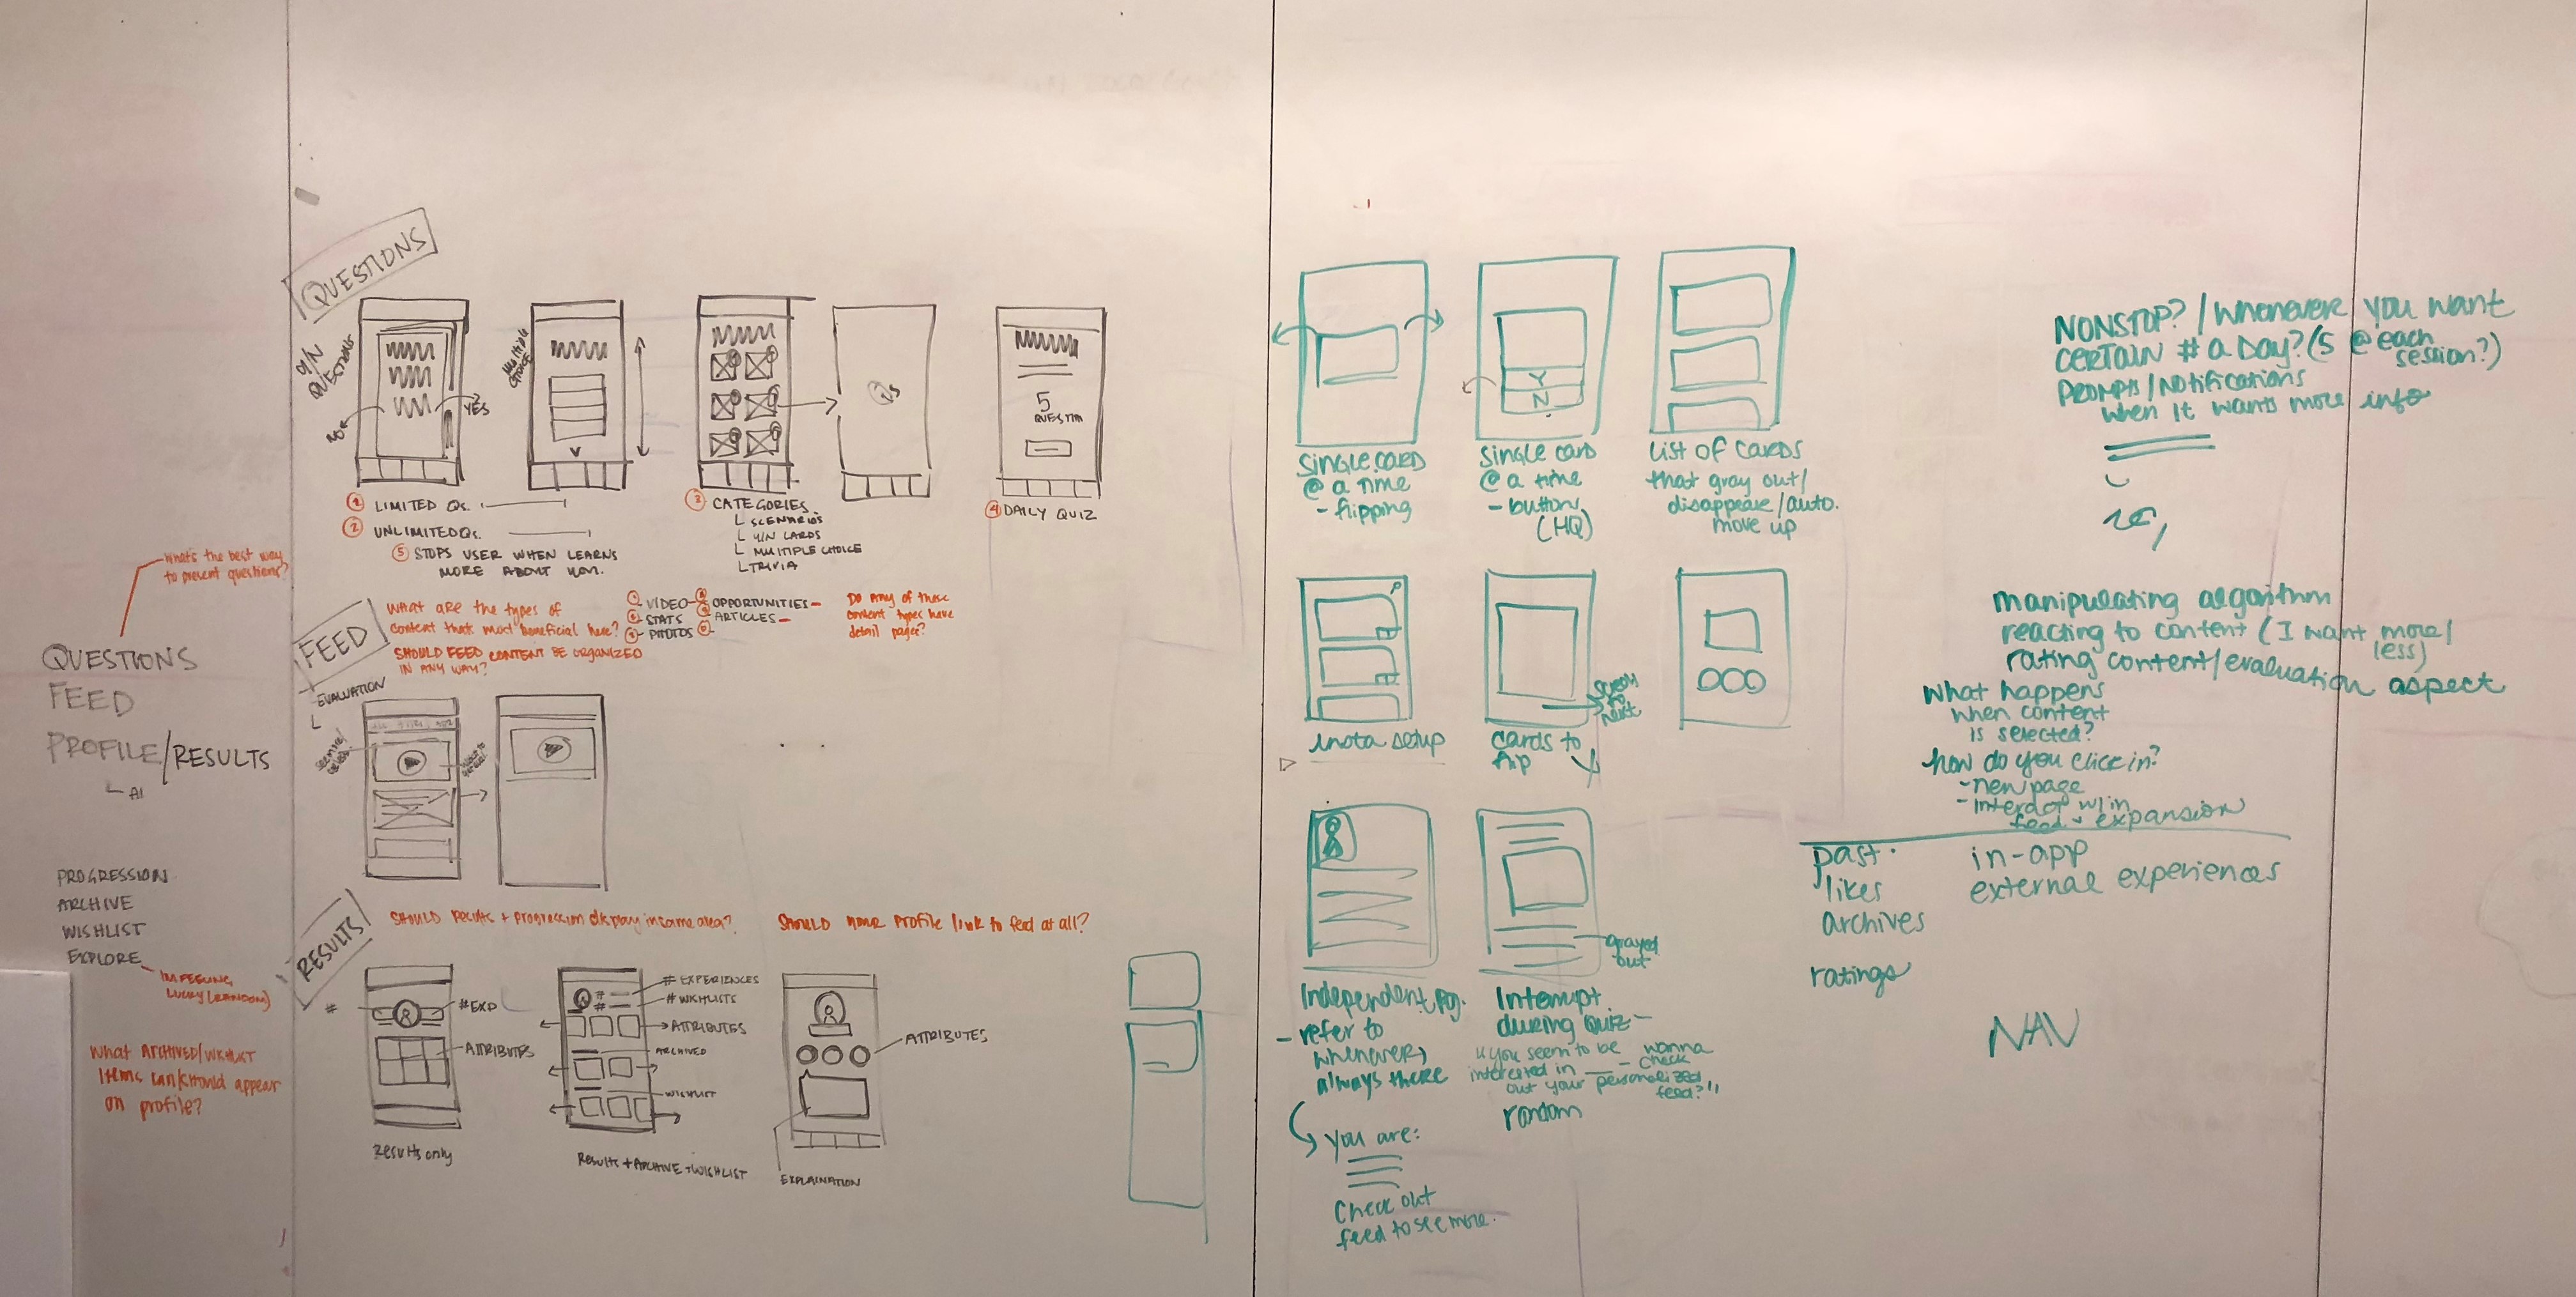 What's the best way
to present questions?
QUESTIONS
FEED
PROFILE/RESULTS
AI
PROGRESSION
ARCHIVE
WISHLIST
EXPLORE
IM FEELING
LUCKY (RANDOM)
What ARCHIVED/WISHLIST
Items can/should appear
on profile?
QUESTIONS
Y/N
QUESTIONS
YES
Multiple
Choice
Qs
5
QUESTION
1 LIMITED Qs.
2 UNLIMITED Qs.
5 STOPS USER WHEN LEARNS
MORE ABOUT YOU.
3 CATEGORIES
SCENARIOS
Y/N CARDS
MULTIPLE CHOICE
TRIVIA
4 DAILY QUIZ
FEED
WHAT ARE THE types OF
content that most beneficial here?
SHOULD FEED CONTENT BE ORGANIZED
IN ANY WAY?
VIDEO
STATS
PHOTOS
OPPORTUNITIES
ARTICLES
Do any of these
content types have
detail pages?
EVALUATION
RESULTS
SHOULD results + progression display in same area?
SHOULD your profile link to feed at all?
#
#EXP
ATTRIBUTES
Results only
# EXPERIENCES
# WISHLISTS
ATTRIBUTES
ARCHIVED
WISHLIST
Results + ARCHIVE + WISHLIST
ATTRIBUTES
EXPLAINATION
single card
@ a time
- flipping
Y
N
single card
@ a time
- button
(HQ)
list of cards
that gray out/
disappear/auto.
move up
insta setup
cards to
flip
swipe
to
next
Independent pg.
- refer to
whenever,
always there
you are:
Check out
feed to see more.
grayed
out
Interrupt
during quiz -
"you seem to be
interested in ___ - wanna check
out your personalized
feed?"
random
NONSTOP? / whenever you want
CERTAIN # a Day? (5 @ each
session?)
PROMPTS/Notifications
when it wants more info
manipulating algorithm
reacting to content (I want more/
less)
rating content/evaluation aspect
What happens
when content
is selected?
how do you click in?
- new page
- interact w/in
feed + expansion
past
likes
archives
ratings
in-app
external experiences
NAV